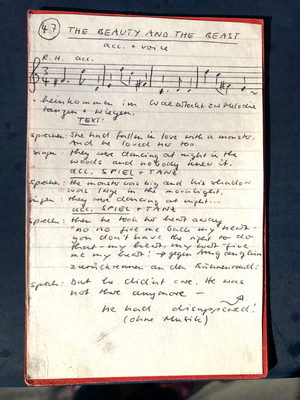 47 THE BEAUTY AND THE BEAST
acc. + voice
R. H. acc.
3 4
hereinkommen im
tanzen + wiegen.
TEXT:
sprechen: She had fallen in love with a monster.
And he loved her too.
singen: they were dancing at night in the
woods and nobody knew it.
acc. SPIEL + TANZ
sprechen: the monster was big and his shadow
was long in the moonlight.
singen: they were dancing at night...
acc. SPIEL + TANZ
sprechen: then he took her heart away
"no no give me back my heart-
you don't have the right to do
that - my heart, my heart - give
me my heart! →
zurückrennen an den Bühnenrand:
sprech: but he didn't care. He was
not there anymore -
he had disappeared!
(ohne Musik)